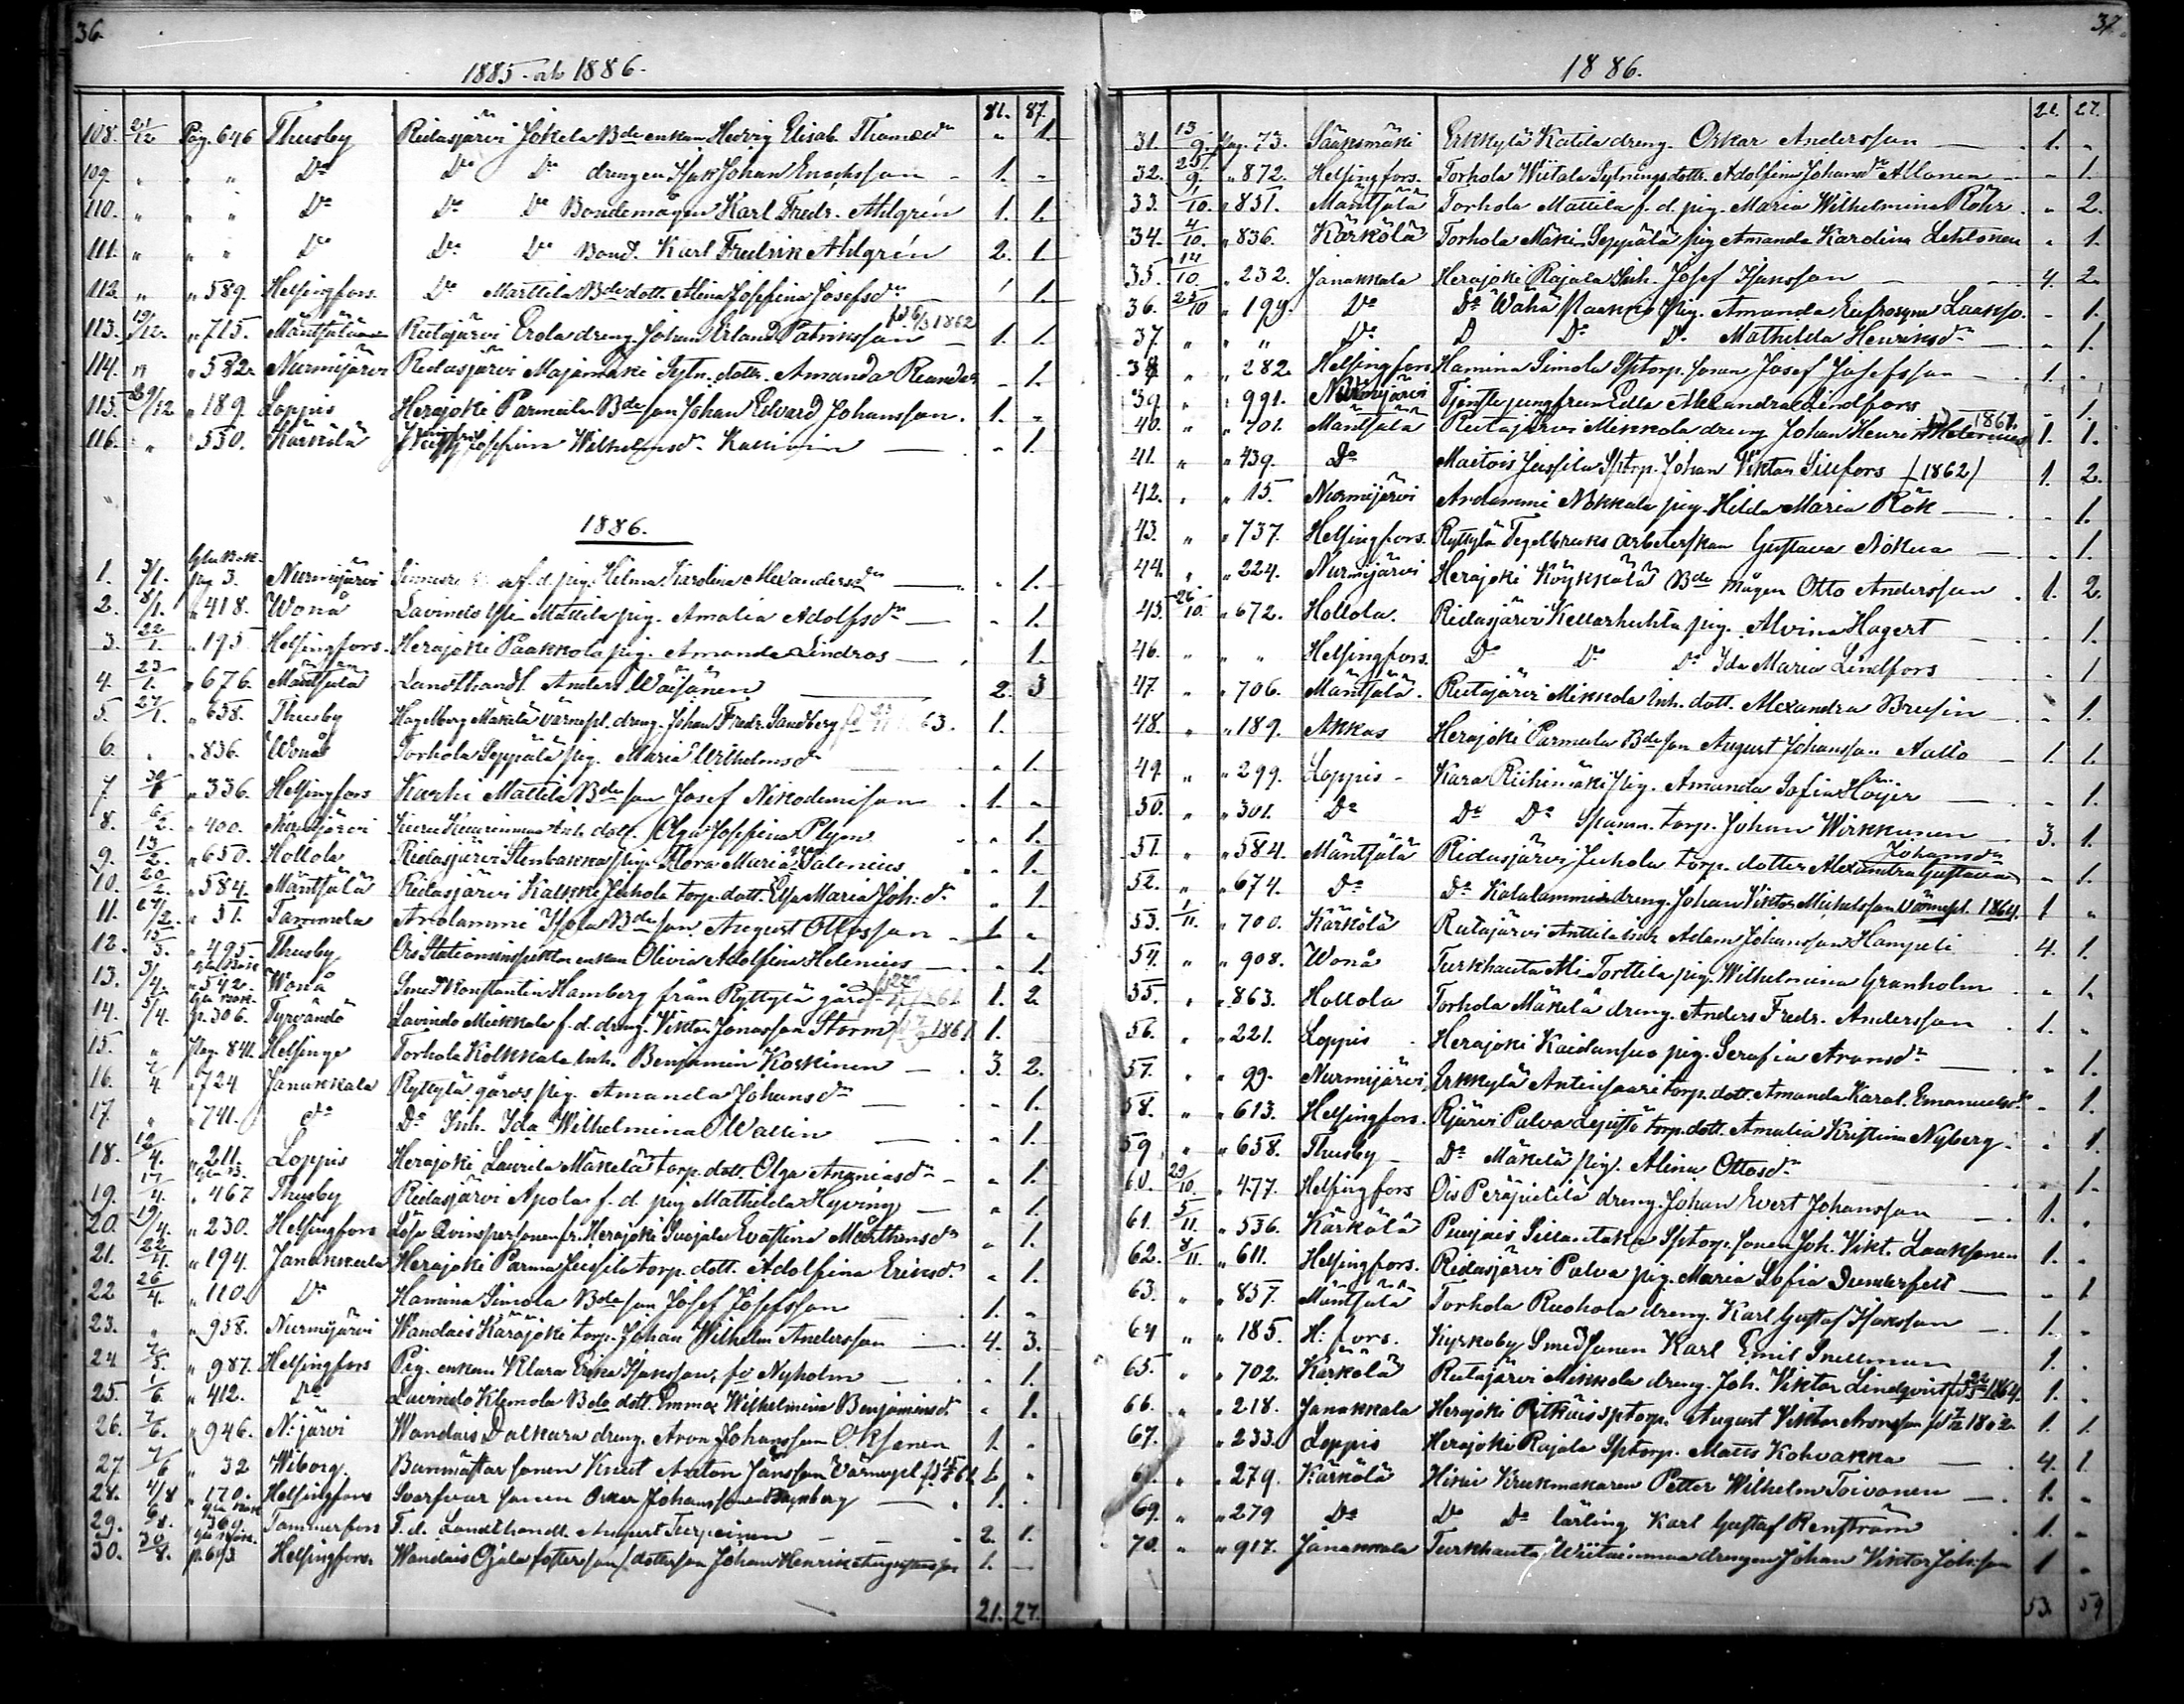 36.
1885. och 1886.
81. 87.
108. 21/12 Pag. 646 Thusby Ridasjärvi Jokela Bde enkan Hedvig Elisab. Thomasdr " 1.
109. " " " Do Do Do drengen Isak Johan Enochsson 1. "
110. " " " Do Do Do Bondemågen Karl Fredr. Ahlgrén 1. 1.
111. " " " Do Do Do Bond. Karl Fredrik Ahlgrén 2. 1.
112. " " 589. Helsingfors. Do Marttila Bde dott. Alina Josefina Josefsdr 1.
113. 19/12. " 715. Mäntsälä Ridasjärvi Erola dreng Johan Erland Patriksson fd. 6/3 1862 1. 1.
114. " " 582. Nurmijärvi Ridasjärvi Majamäki Sytn. dottr. Amanda Reander " 1.
115. 29/12 " 189. Loppis Herajoki Parmala Bde son Johan Edvard Johansson. 1. "
116. " " 550. Kärkölä Josefina Wilhelmsdr " 1.
1886.
1. 3/1. pag 3. Nurmijärvi f. d. pig. Helma Karolina Alexandersdr " 1.
2. 8/1. " 418. Wonå Lavinto Yli Mattila pig. Amalia Adolfsdr " 1.
3. 22/1. " 195 Helsingfors. Herajoki Paakkola pig. Amanda Lindros 1.
4. 23/1. " 676. Mäntsälä Landthandl. Anders Wäisänen 2. 3
5. 27/1. " 658. Thusby Hagelberg Mäkelä värnepl. dreng. Johan Fredr. Sandberg 63. 1.
6. " " 836. Wonå Torhola Seppälä pig. Maria Wilhelmsdr " 1.
7. 30/1 " 336. Helsingfors Karhi Mattila Bde son Josef Nikodemisson 1. "
8. 6/2. " 400. Nurmijärvi Inh. dott. Olga Josefina Plym " 1.
9. 13/2. " 650. Hollola Ridasjärvi Stenbacka pig. Flora Maria Salenius " 1.
10. 20/2. " 584. Mäntsälä Ridasjärvi Kalkki Juhola torp. dott. Elsa Maria Joh. dr " 1.
11. 27/2. " 51. Tammela Arolammi Isola Bde son August Ottosson 1. "
12. 15/3. " 495 Thusby Ois Stationsinspektor enkan Olivia Adolfina Helenius " 1.
13. 3/4. " 542. Wonå Smed Konstantin Hamberg från Ryttylä gård 1. 2.
14. 5/4. p. 306. Tyrvändö Lavinto Mukkala f. d. dreng. Viktor Jonasson Storm 1861 1.
15. " Pag. 841. Helsinge Torhola Kolkkala Inh. Benjamin Koskinen 3. 2.
16. 7/4. " 724 Janakkala Ryttylä gårds pig. Amanda Johansdr " 1.
17. " " 741. Do Do Inh. Ida Wilhelmina Wallin " 1.
18. 12/4. " 211. Loppis Herajoki Laurila Mäkelä torp. dott. Olga Ananiasdr " 1.
19. 17/4. " 467 Thusby Ridasjärvi Apola f. d. pig Mathilda Hyving " 1.
20. 19/4. " 230. Helsingfors Lösa Qvinspersonen fr. Herajoki Suojala Evastina Mårthensdr " 1.
21. 22/4. " 194. Janakkala Herajoki Parma Jussila torp. dott. Adolfina Eriksdr " 1.
22 26/4. " 110. Do Hamina Simola Bde son Josef Josefsson 1. "
23. " " 958. Nurmijärvi Wandais Käräjoki torp. Johan Wilhelm Andersson 4. 3.
24 7/5. " 987. Helsingfors Pig. enkan Klara Erika Isaksson, fd Nyholm " 1.
25. 1/6 " 412. Do Lavinto Klemola Bde dott. Emma Wilhelmina Benjaminsdr " 1.
26. 7/6. " 946. N:järvi Wandais Dalkara dreng. Aron Johansson Oksanen 1. "
27. 7/6 " 32 Wiborg. Banmästar sonen Knut Anton Jansson Värnepl. 1. "
28. 4/8 " 170. Helsingfors Svarfvar sonen Oskar Johansson 1. "
29. 6/8. " 360. Tammerfors F. d. Landthandl. August Turpeinen 2. 1.
30. 30/8. p. 693 Helsingfors. Wandais Ojala fosterson/dotterson Johan Henrik Augustsson 1.
21. 27.
37.
1886.
21. 27.
31. 13/9. Pag. 73. Sääksmäki Erkkylä Katila dreng. Oskar Andersson 1. "
32. 25/9. " 872. Helsingfors. Torhola Wiitala Sytningsdottr. Adolfina Johansdr Allonen " 1.
33. 1/10. " 851. Mäntsälä Torhola Mattila f. d. pig. Maria Wilhelmina Röhr " 2.
34. 4/10. " 836. Kärkölä Torhola Mäki Seppälä pig Amanda Karolina Lehtonen " 1.
35. 14/10. " 232. Janakkala Herajoki Rajala Inh. Josef Isaksson 4. 2.
36. 23/10 " 199. Do Do Waha Paakki pig. Amanda Eufrosyna Laakso. " 1.
37. " " " Do D Do D. Mathilda Henriksdr " 1.
38 " " 282 Helsingfors Hamina Simola Sptorp. sonen Josef Josefsson 1. "
39. " " 991. Nurmijärvi Tjenste jungfrun Edla Alexandra Lindfors " 1.
40. " " 701. Mäntsälä Ridasjärvi Mikkola dreng Johan Henrik Helenius 1867. 1. 1.
41. " " 439. Do Maitois Jussila Sptorp. Johan Viktor Sillfors (1862) 1. 2.
42. " " 15. Nurmijärvi Arolammi Nikkala pig. Hilda Maria Rök " 1.
43. " " 737. Helsingfors. Ryttylä Tegelbruks arbeterskan Gustava Nokua " 1.
44. " " 224. Nurmijärvi Herajoki Köykkälä Bde mågen Otto Andersson 1. 2.
45. 26/10. " 672. Hollola. Ridasjärvi Kellarhuhta pig. Alvina Hagert " 1.
46. " " " Helsingfors. Do Do Do Ida Maria Lindfors " 1
47. " " 706. Mäntsälä. Ridasjärvi Mikkola Inh. dott. Alexandra Brusin " 1.
48. " " 189. Akkas Herajoki Parmala Bde son August Johansson Aalto 1. 1.
49. " " 299. Loppis Kara Riihimäki pig. Amanda Sofia Höijer " 1.
50. " " 301. Do Do Do Spann. torp. Johan Wirkkunen 3. 1.
51. " " 584. Mäntsälä Ridasjärvi Juhola torp. dotter Alexandra Gustava Johansdr " 1.
52. " " 674. Do Do Kalalammi dreng. Johan Viktor Mickelsson värnepl. 1864. 1 "
53. 1/11. " 700. Kärkölä Ridasjärvi Anttila Inh Adam Johansson Hampuli 4. 1.
54. " " 908. Wonå Turkhauta Ali Torttila pig. Wilhelmina Granholm " 1.
55. " " 863. Hollola Torhola Mäkelä dreng. Anders Fredr. Andersson 1. "
56. " " 221. Loppis Herajoki Kaidansuo pig. Serafia Aronsdr " 1.
57. " " 99. Nurmijärvi Erkkylä Antinsaari torp. dott. Amanda Karol. Emanuelsdr " 1.
58. " " 613. Helsingfors. Rjärvi Palva Lepistö torp. dott. Amalia Kristina Nyberg " 1.
59 " " 658. Thusby Do Mäkelä pig. Alina Ottosdr " 1.
60. 29/10 " 477. Helsingfors Ois Peräpietilä dreng. Johan Evert Johansson 1. "
61. 5/11. " 536. Kärkölä Puujais Sillantaka Sptorp. sonen Joh. Vikt. Laaksonen 1. "
62. 8/11. " 611. Helsingfors. Ridasjärvi Palva pig. Maria Sofia Dunderfelt " 1
63. " " 857. Mäntsälä Torhola Ruohola dreng. Karl Gustaf Isaksson 1. "
64 " " 185. H:fors. Kyrkoby Smedsonen Karl Emil Snellman 1. "
65. " " 702. Kärkölä Ridasjärvi Mikkola dreng. Joh. Viktor Lindqvist 1864. 1. "
66. " " 218. Janakkala Herajoki Pitkäis sptorp. August Viktor Aronsson 1862. 1. 1.
67. " 233. Loppis Herajoki Rajala Sptorp. Matts Kohvakka 4. 1.
68. " " 279. Kärkölä Hikiä Krukmakaren Petter Wilhelm Toivonen 1. "
69. " " 279 Do Do Do lärling Karl Gustaf Renström 1. "
70. " " 917. Janakkala Turkhauta Wiitainmaa drengen Johan Viktor Johsson 1 "
53. 59